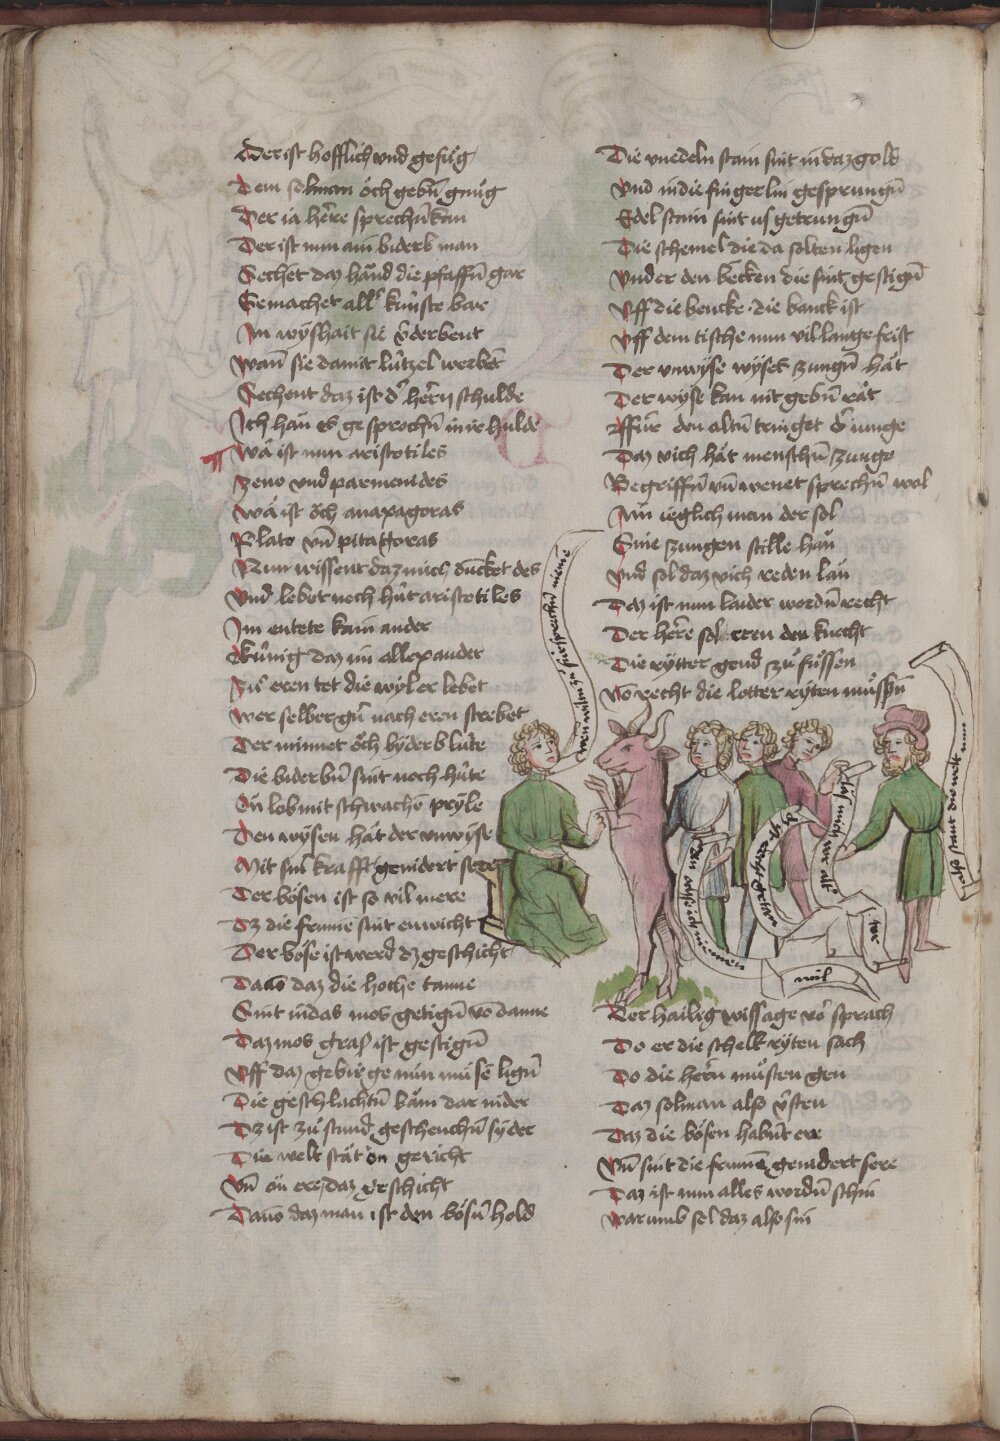 Der ist hofflich vnd gefuͤg
Dem sol man oͤch gebn̄ gnuͤg
Der ia herre sprechn̄ kan
Der ist nun ain biderb man
Sechēt daz haund die pfaffn̄ gar
Gemachet all kuͥnste bar
Jn wyshait sie v̄derbent
Wan̄ sie da mit luͥtzel werbēt
Sechent daz ist d' herrn schulde
Jch hān es gesprochn̄ in ir hulde
Wa ist nun aristotiles
Zeno vnd parmenides
Wa ist oͤch anaxagoras
Plato vn̄ pitagoras
Nun wissent daz mich duncket des
Vnd lebet noch huͥt aristotiles
Jm entete kain ander
Kuͥnig daz im allexander
Zuͦ eren tet die wyl er lebet
Wer selber gn̄ nach eren strebet
Der minnet oͤch byderb luͥte
Die biderbn̄ sint noch huͥte
On lob mit schwachē pryse
Den wysen hat der vnwyse
Mit sin̄ krafft genidert sere
Der boͤsen ist so vil mere
Dz die frumē sint enwicht
Der boͤse ist werd dz geschicht
Dauō daz die hoche tanne
Sint in das mos getign̄ vō danne
Daz mos gras ist gestign̄
Vff daz gebirge nun muͤsē lign̄
Die geschlachtn̄ baͤm dar nider
Dz ist zuͦ stund geschenchn̄ syder
Die welt stāt on gericht
Vn̄ on ere daz geschicht
Dauō daz man ist den boͤsn̄ hold
Die vnedeln stain sint in daz gold
Vnd in die fingerlin gesprungn̄
Edel stain sint vs getrungn̄
Die schemel die da solten ligen
Vnder den becken die sint gestign̄
Vff die bencke die banck ist
Vff dem tische nun vil lange frist
Der vnwyse wyses zungn̄ hāt
Der wyse kan nit gebn̄ rāt
Ffuͥr den altn̄ tringet d' iunge
Daz vich hāt menschn̄ zunge
Begriffn̄ vn̄ wenet sprechn̄ wol
Ain ieglich man der sol
Sine zungen stille hān
Vnd sol daz vich reden lān
Daz ist nun laider wordn̄ recht
Der herre sol eren den knecht
Die rytter gend zuͦ fuͤssen
Vō recht die lotter ryten muͤssn̄
wil
Der hailig wissage vor sprach
Do er die schelk ryten sach
Do die herrn muͤsten gen
Daz sol man also v̄sten
Daz die boͤsen habn̄t ere
Vn̄ sint die frumē genidert sere
Daz ist nun alles wordn̄ schin
Warumb sol daz also sin